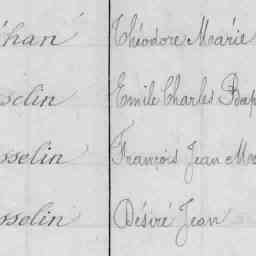 éhan Théodore Marie
sselin Emile Charles Bap
sselin François Jean Ma
sselin Désiré Jean